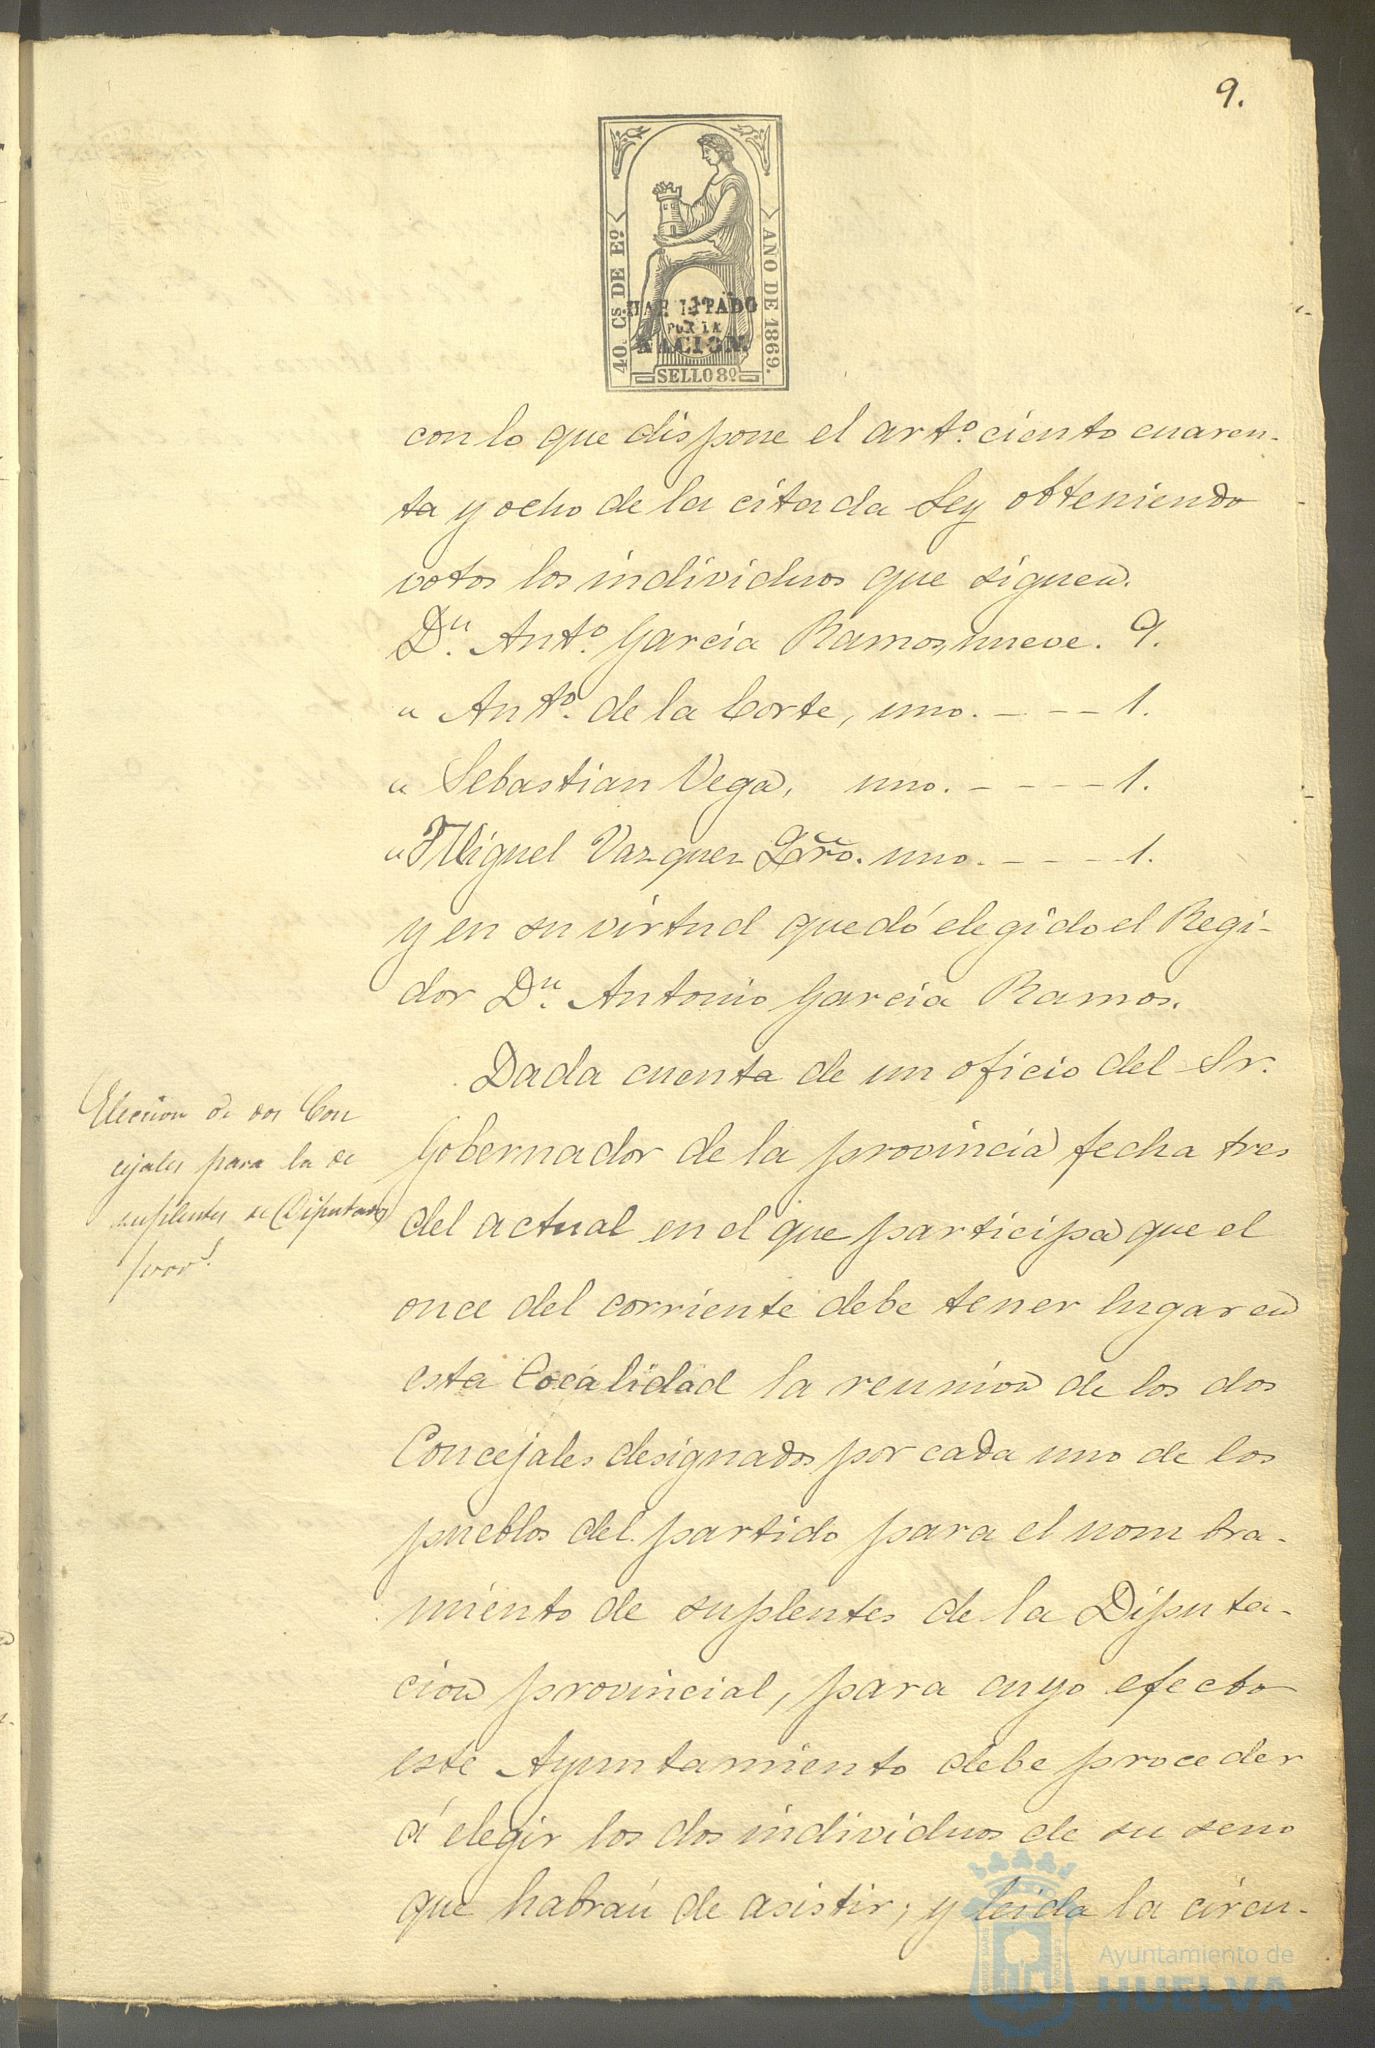 9.
40. Cs. DE Eº.
AÑO DE 1869.
HABILITADO
POR LA
NACION.
SELLO 8º
con lo que dispone el artº. ciento cuaren-
ta y ocho de la citada Ley obteniendo
votos los individuos que siguen.
Dn. Antº. Garcia Ramos, nueve. 9.
" Antº. de la Corte, uno. - - - 1.
" Sebastian Vega, uno. - - - - 1.
" Miguel Vazquez uno. - - - - 1.
y en su virtud quedó elegido el Regi-
dor Dn. Antonio Garcia Ramos.
Dada cuenta de un oficio del Sr.
Gobernador de la provincia fecha tres
del actual en el que participa que el
once del corriente debe tener lugar en
esta Localidad la reunion de los dos
Concejales designados por cada uno de los
pueblos del partido para el nombra-
miento de suplentes de la Diputa-
cion provincial, para cuyo efecto
este Ayuntamiento debe proceder
á elegir los dos individuos de su seno
que habrán de asistir; y leida la circu-
Eleccion de dos Con
cejales para la de
suplentes de Diputado
provl.
Ayuntamiento de
HUELVA